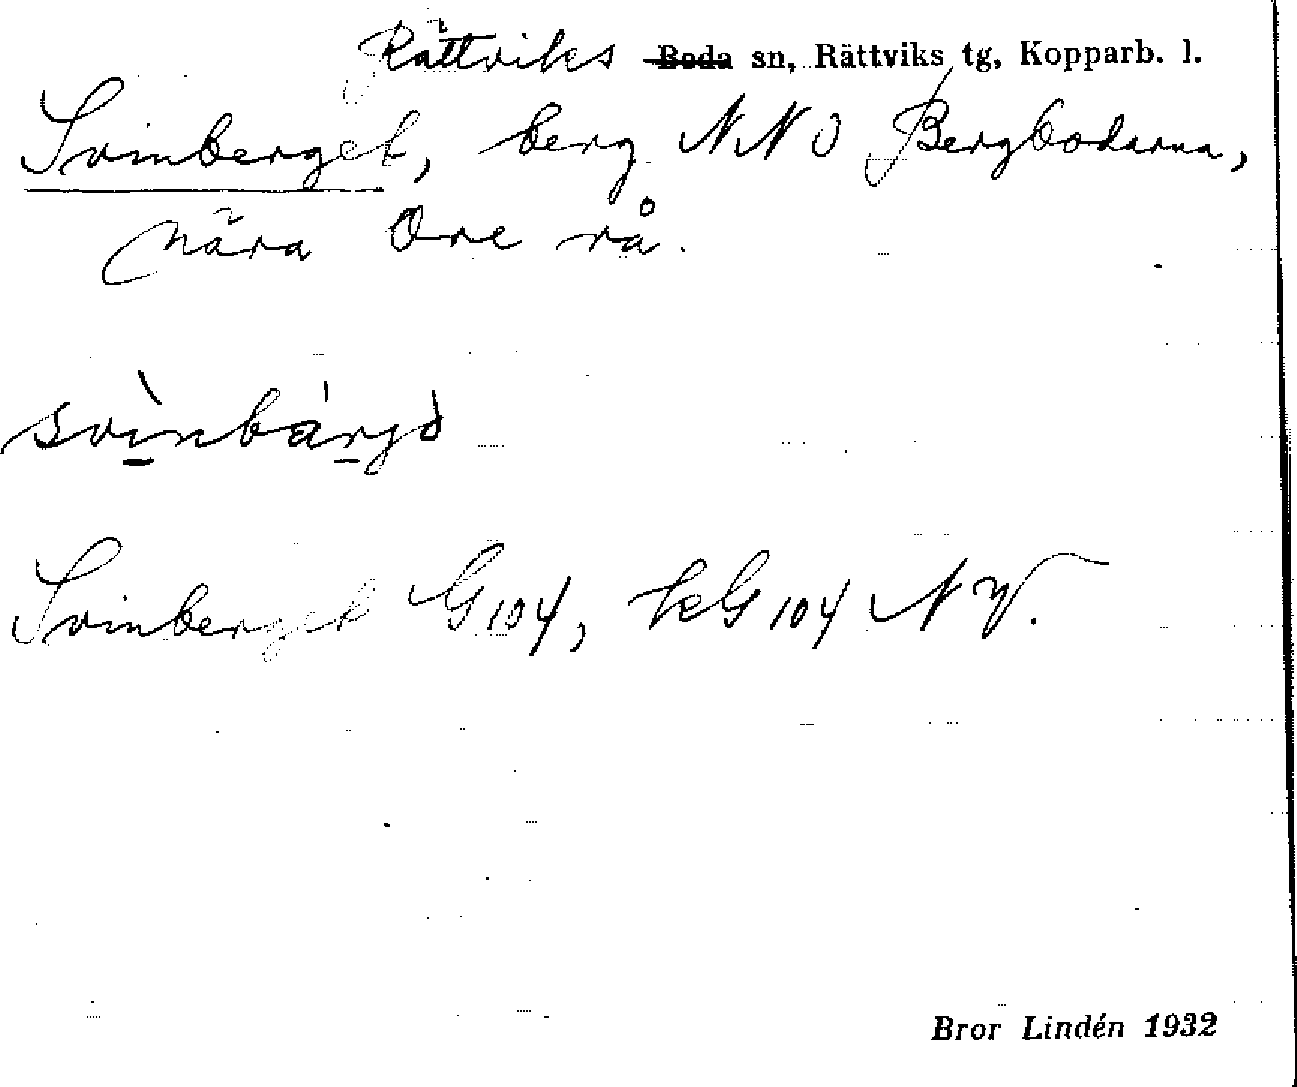 Rättviks Boda sn, Rättviks tg, Kopparb. l.
Svinberget, berg NNO Bergbodarna,
nära Ore rå.
svìnbárgə
Svinberget G104, kG104 NV.
Bror Lindén 1932